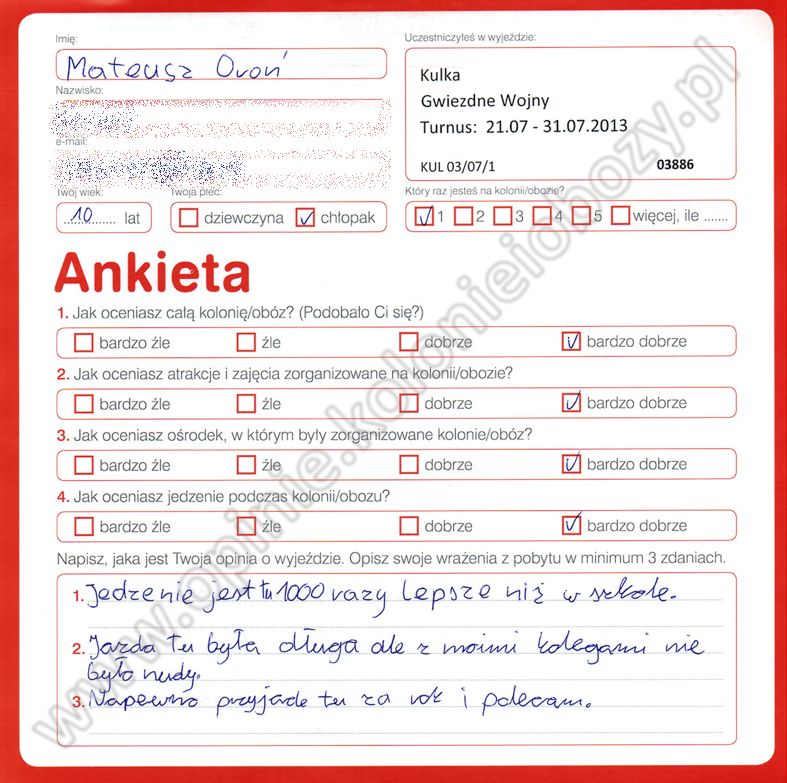 Imię:
Mateusz Oroń
Nazwisko:
e-mail:
Twój wiek:
10 lat
Twoja płeć:
dziewczyna chłopak
Uczestniczyłeś w wyjeździe:
Kulka
Gwiezdne Wojny
Turnus: 21.07 - 31.07.2013
KUL 03/07/1 03886
Który raz jesteś na kolonii/obozie?
1 2 3 4 5 więcej, ile .......
Ankieta
1. Jak oceniasz całą kolonię/obóz? (Podobało Ci się?)
bardzo źle źle dobrze bardzo dobrze
2. Jak oceniasz atrakcje i zajęcia zorganizowane na kolonii/obozie?
bardzo źle źle dobrze bardzo dobrze
3. Jak oceniasz ośrodek, w którym były zorganizowane kolonie/obóz?
bardzo źle źle dobrze bardzo dobrze
4. Jak oceniasz jedzenie podczas kolonii/obozu?
bardzo źle źle dobrze bardzo dobrze
Napisz, jaka jest Twoja opinia o wyjeździe. Opisz swoje wrażenia z pobytu w minimum 3 zdaniach.
1. Jedzenie jest tu 1000 razy lepsze niż w szkole.
2. Jazda tu była długa ale z moimi kolegami nie
było nudy.
3. Napewno przyjade tu za rok i polecam.
www.opinie.kolonieiobozy.pl